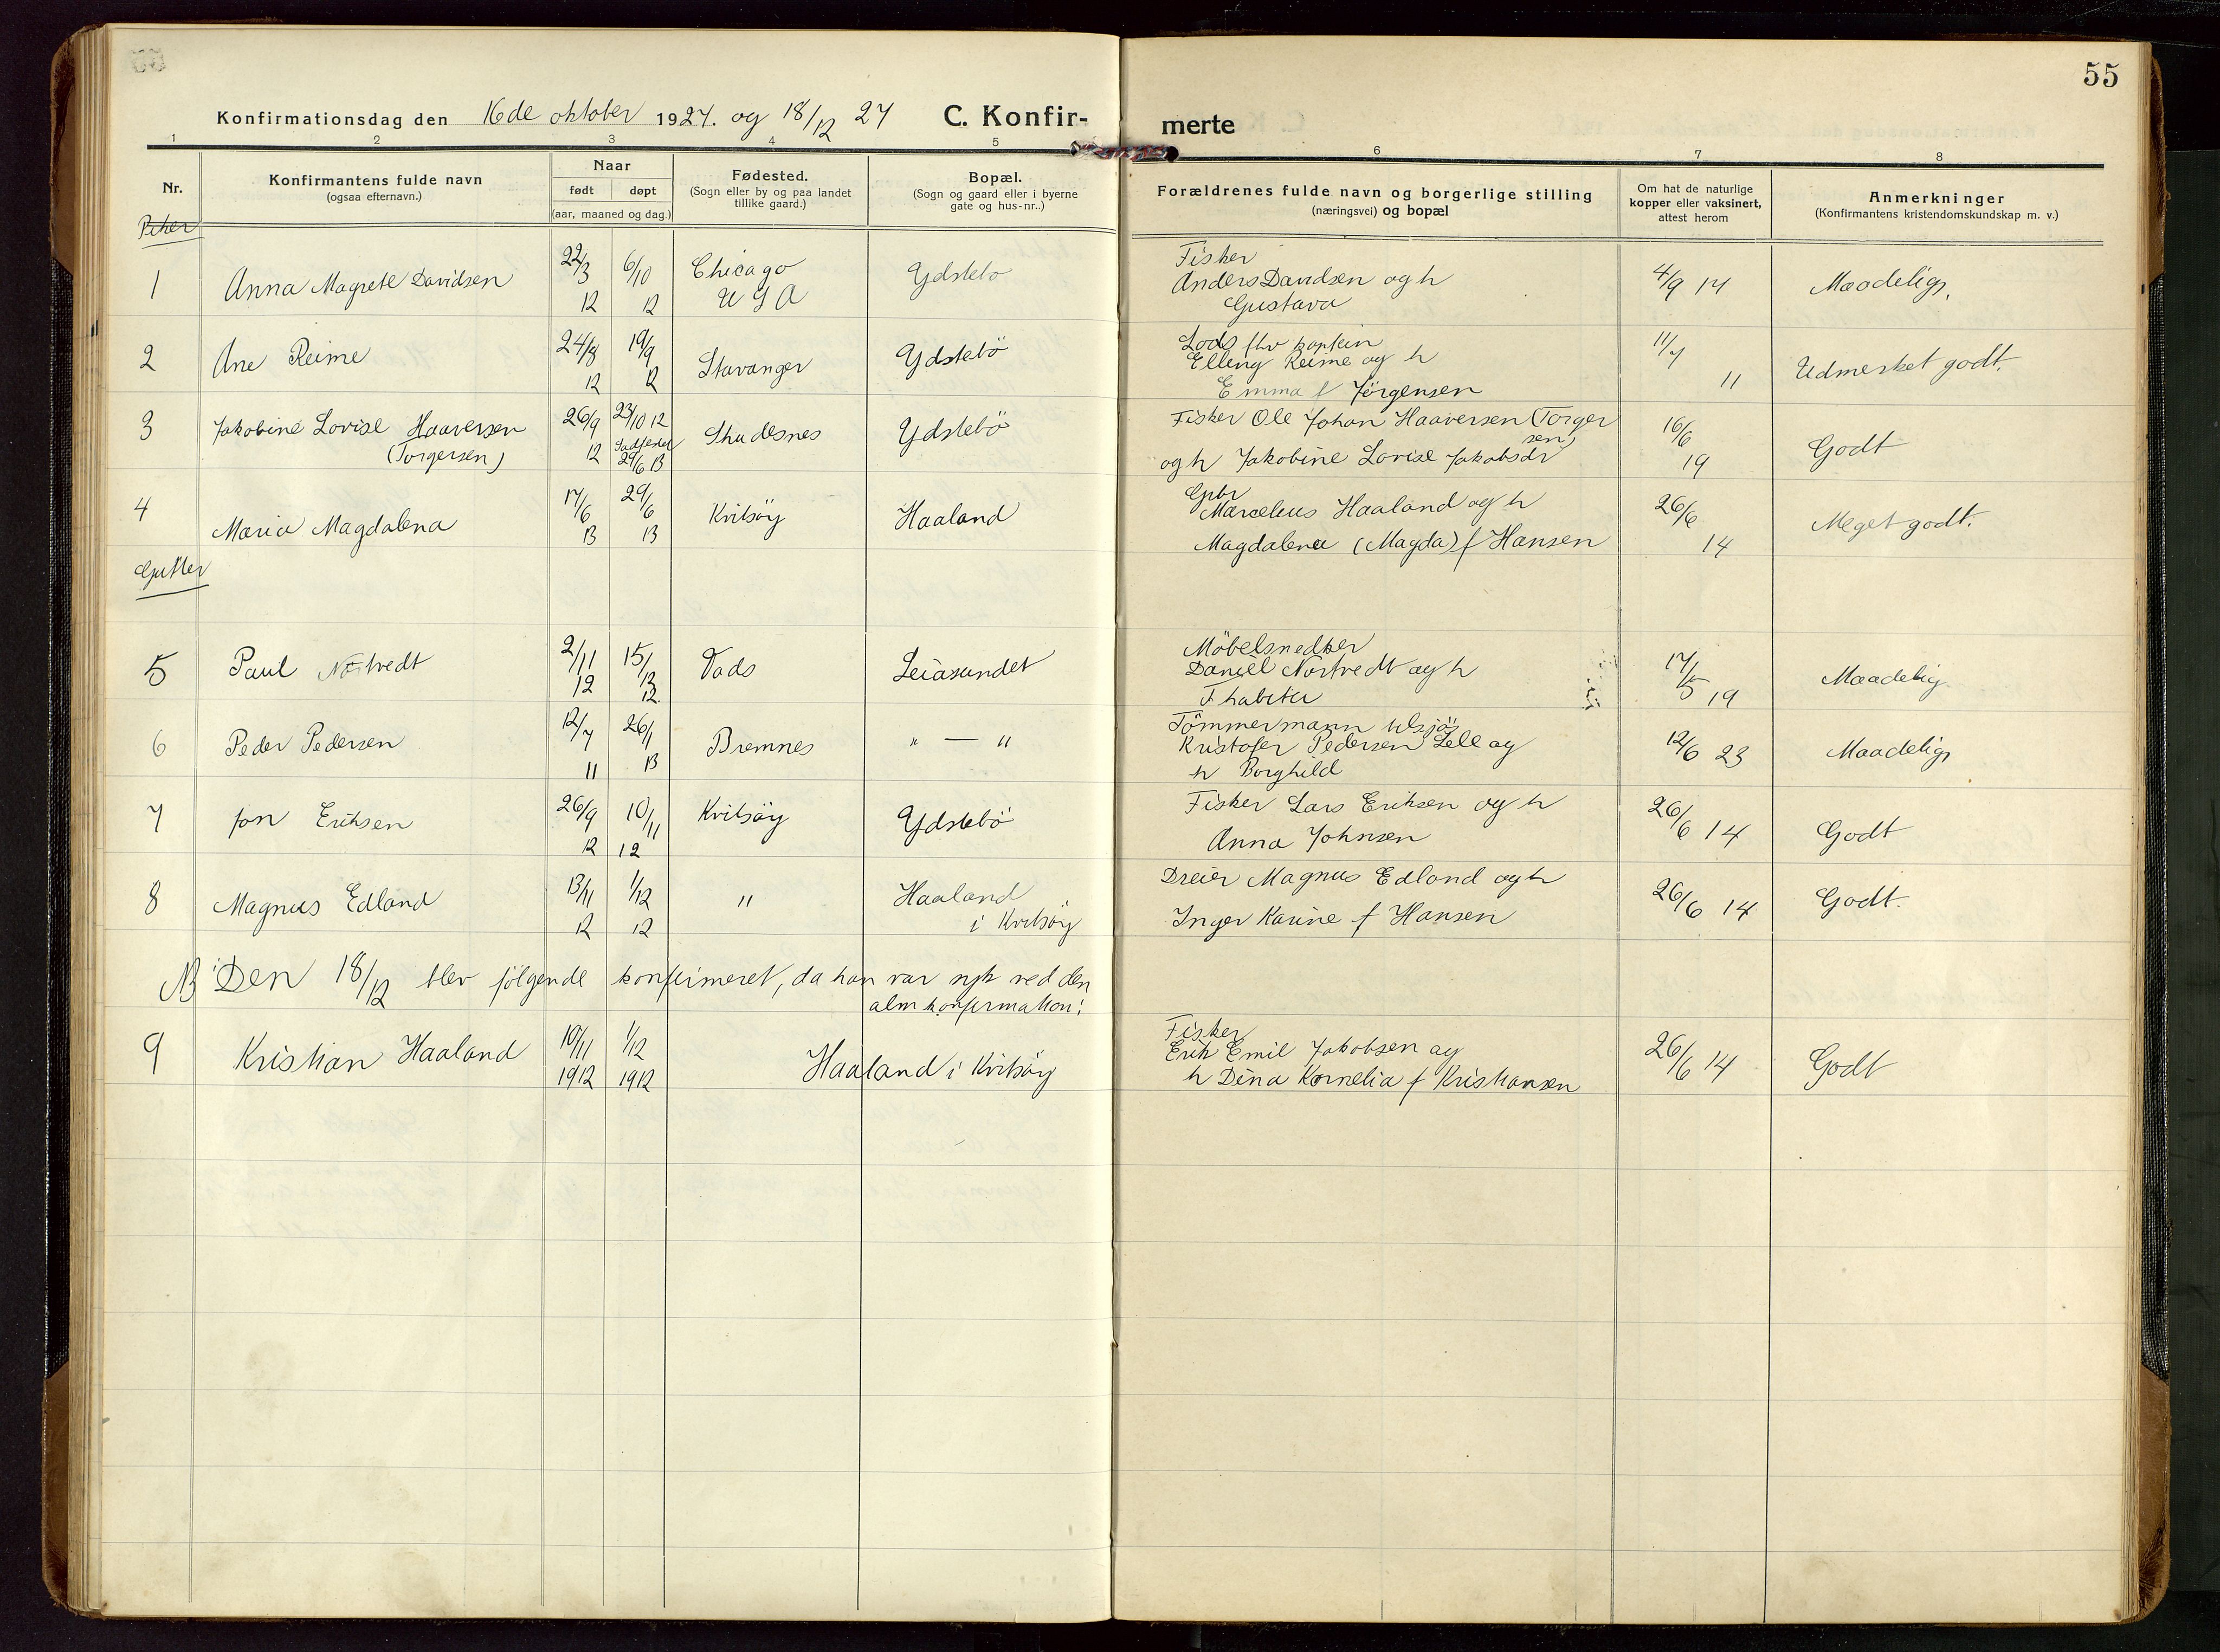 55
Konfirmationsdag den 16de oktober 1927. og 18/12 27 C. Konfir-
merte
1 2 3 4 5 6 7 8
Nr.
Konfirmantens fulde navn
(ogsaa efternavn.)
Naar
født døpt
(aar, maaned og dag.)
Fødested.
(Sogn eller by og paa landet
tillike gaard.)
Bopæl.
(Sogn og gaard eller i byerne
gate og hus-nr..)
Forældrenes fulde navn og borgerlige stilling
(næringsvei) og bopæl
Om hat de naturlige
kopper eller vaksinert,
attest herom
Anmerkninger
(Konfirmantens kristendomskundskap m. v.)
Piker
1 Anna Magrete Davidsen 22/3 12 6/10 12 Chicago
U S A
Ydstebø
Fisker
Anders Davidsen og h
Gustava
4/9 14 Maadelig,
2 Ane Reime 24/8 12 19/9 12 Stavanger Ydstebö
Lods fhv kaptein
Elling Reime og h
Emma f Jörgensen
11/7 11 Udmerket godt.
3 Jakobine Lovise Haaversen
(Torgersen)
26/9 12 23/10 12
29/6 13
Skudesnes Ydstebö
Fisker Ole Johan Haaversen (Torger
sen)
og h Jakobine Lovise Jakobsdr
16/6 19 Godt
4 Maria Magdalena 17/6 13 29/6 13 Kvitsöy Haaland
Gbr
Marcelius Haaland og h
Magdalena (Magda) f Hansen
26/6 14 Meget godt.
Gutter
5 Paul Nörtvedt 2/11 12 15/12 12 Vads Leiasundet
Möbelsnedker
Daniel Nörtvedt og h
Thabita
17/5 19 Maadelig
6 Peder Pedersen 12/7 11 26/1 13 Bremnes " — "
Tömmermann tilsjös
Kristofer Pedersen Lele og
h Borghild
12/6 23 Maadelig,
7 Jon Eriksen 26/9 12 10/11 12 Kvitsöy Ydstebö
Fisker Lars Eriksen og h
Anna Johnsen
26/6 14 Godt
8 Magnus Edland 13/11 12 1/12 12 " Haaland
i Kvitsöy
Dreier Magnus Edland og h
Inger Karine f Hansen
26/6 14 Godt.
NB Den 18/12 blev fölgende konfirmeret, da han var syk ved den
alm konfirmation:
9 Kristian Haaland 10/11 1912 1/12 1912 Haaland i Kvitsöy
Fisker
Erik Emil Jakobsen og
h Dina Kornelia f Kristiansen
26/6 14 Godt